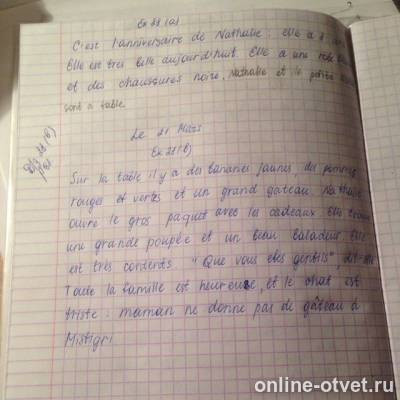 Ex 21 (a)
C'est l'anniversaire de Nathalie: elle a 8
Elle est tres belle aujourd'huit. Elle a une robe
et des chaussures noire, Nathalie et le petite
sont à table.
Le 21 Mars
Ex 21 (b)
Sur la table il y a des bananes jaunes des pommes
rouges et vertes et un grand gateau. Nathalie
ouvre le gros paquet avec les cadeaux Elle trouve
une grande poupée et un beau baladeur. Elle
est tres contents. "Que vous etes gentils", dit-elle
Toute la famille est heureuse, et le chat est
triste: maman ne donne pas de gâteau à
Mistigri
online-otvet.ru